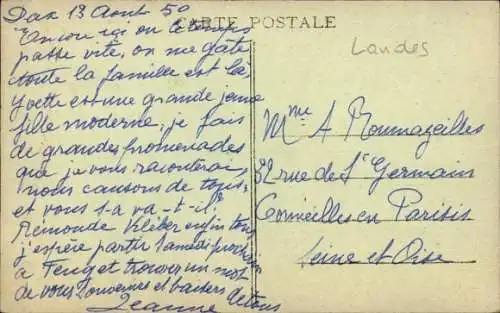 Dax 13 Août 50
CARTE POSTALE
Landes
Encore ici où le temps
passe vite, on me gâte
toute la famille est là,
Yvette est une grande jeune
fille moderne, je fais
de grandes promenades
que je vous raconterai,
nous causons de
et vous s-a va-t-il?
Remonde Kléber enfin tous
j'espère partir Samedi prochain
à et trouver un mot
de vous Souvenirs et baisers
de tous
Jeanne
Mme A Roumazeilles
32 rue de St Germain
Cormeilles en Parisis
Seine et Oise